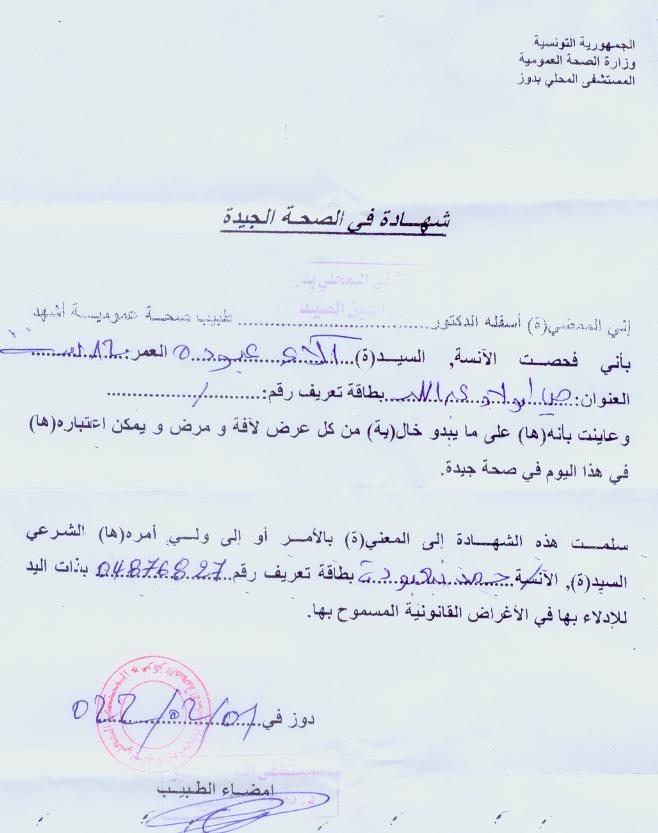 الجمهورية التونسية
وزارة الصحة العمومية
المستشفى المحلي بدوز
شهادة في الصحة الجيدة
إني الممضي(ة) أسفله الدكتور........................ طبيب صحة عمومية أشهد
بأني فحصت الآنسة, السيد(ة)...آلاء عبودة العمر:
العنوان: بطاقة تعريف رقم:............/............
و عاينت بأنه(ها) على ما يبدو خال(ية) من كل عرض لآفة و مرض و يمكن اعتباره(ها)
في هذا اليوم في صحة جيدة.
سلمت هذه الشهادة إلى المعني(ة) بالأمر أو إلى ولي أمره(ها) الشرعي
السيد(ة), الآنسة بطاقة تعريف رقم 04876827 بذات اليد
للإدلاء بها في الأغراض القانونية المسموح بها.
دوز في
امضاء الطبيب